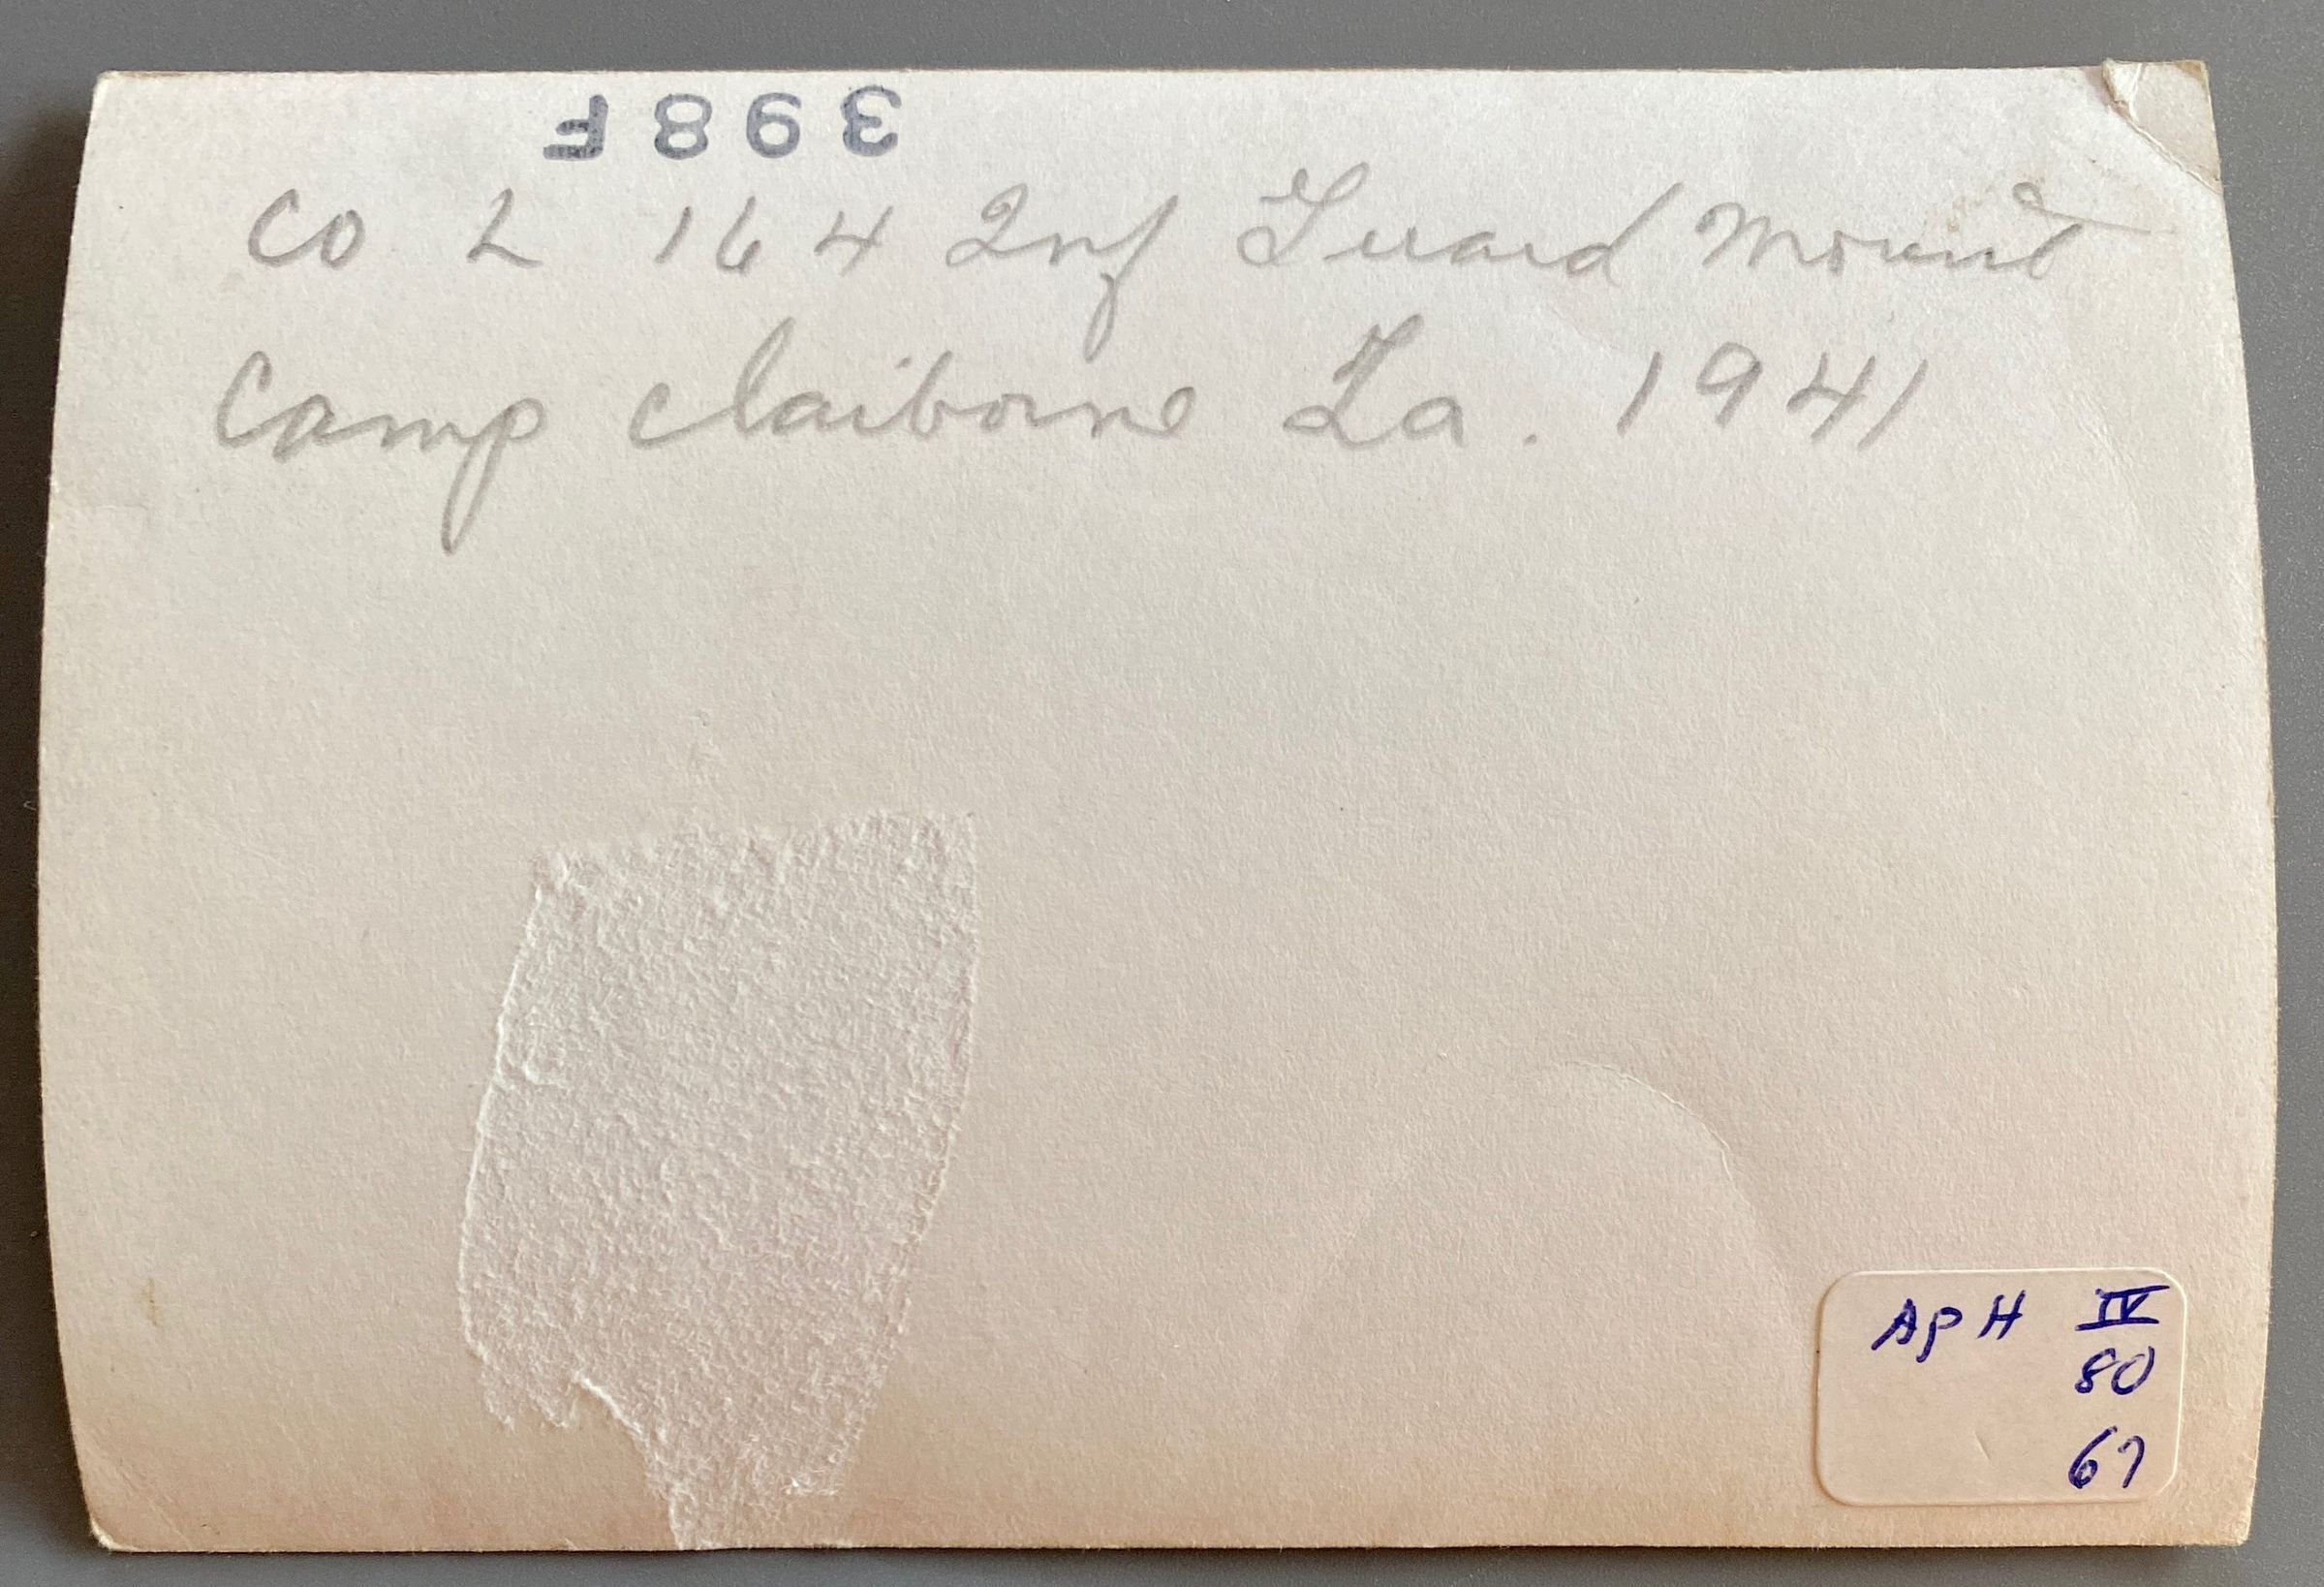 398F
Co L 164 Inf Guard Mount
Camp Claiborne La. 1941
ApH IV
80
67